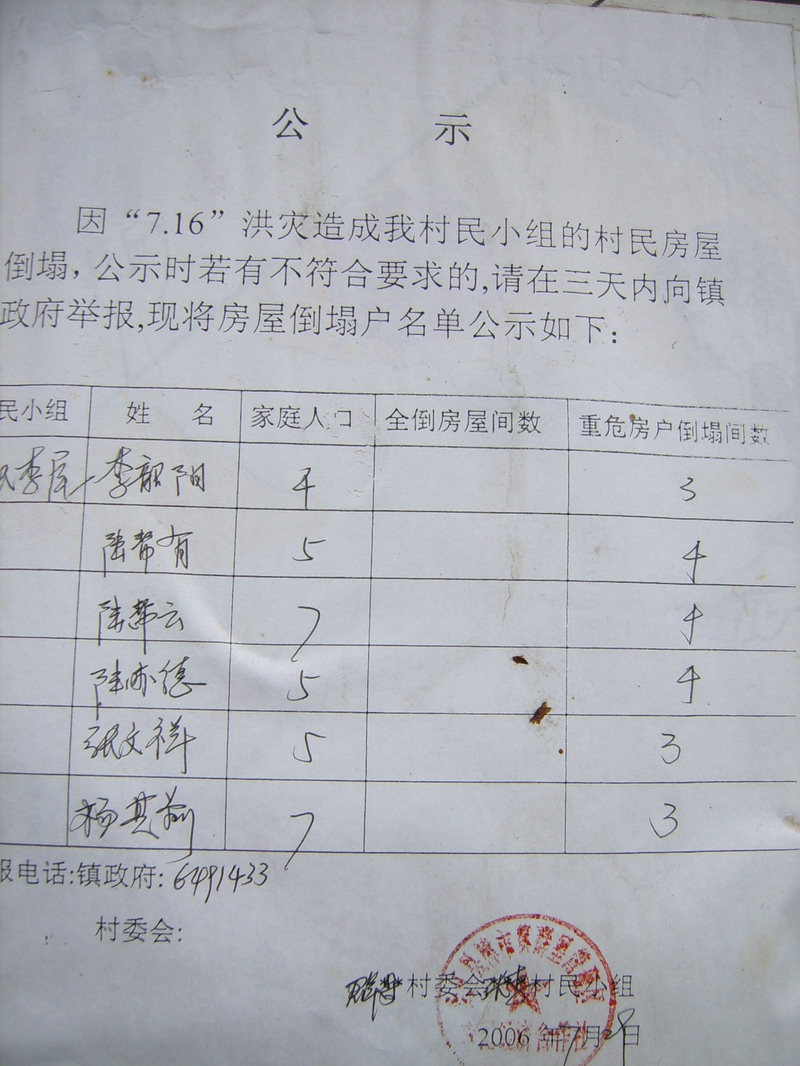 公 示
因“7.16”洪灾造成我村民小组的村民房屋
倒塌，公示时若有不符合要求的,请在三天内向镇
政府举报,现将房屋倒塌户名单公示如下：
民小组 姓 名 家庭人口 全倒房屋间数 重危房户倒塌间数
李屋 李韶阳 4 3
陆帮有 5 4
陆帮云 7 4
陆亦德 5 4
张文祥 5 3
杨其 7 3
报电话:镇政府: 6491433
村委会:
村委会 村民小组
2006 年7月 日